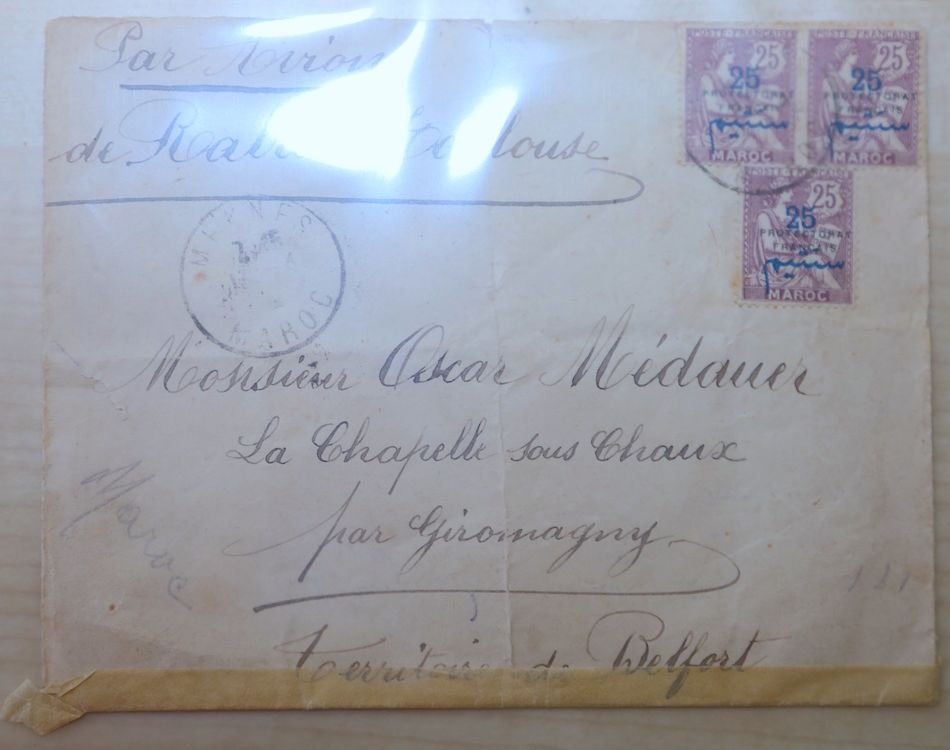 Par Avion
de Toulouse
POSTE FRANÇAISE 25
25
PROTECTORAT
FRANÇAIS
سنتيم
MAROC
POSTE FRANÇAISE 25
25
PROTECTORAT
FRANÇAIS
سنتيم
MAROC
POSTE FRANÇAISE 25
25
PROTECTORAT
FRANÇAIS
سنتيم
MAROC
MEKNES
MAROC
Monsieur Oscar Médauer
La Chapelle sous Chaux
par Giromagny
Maroc
Territoire de Belfort